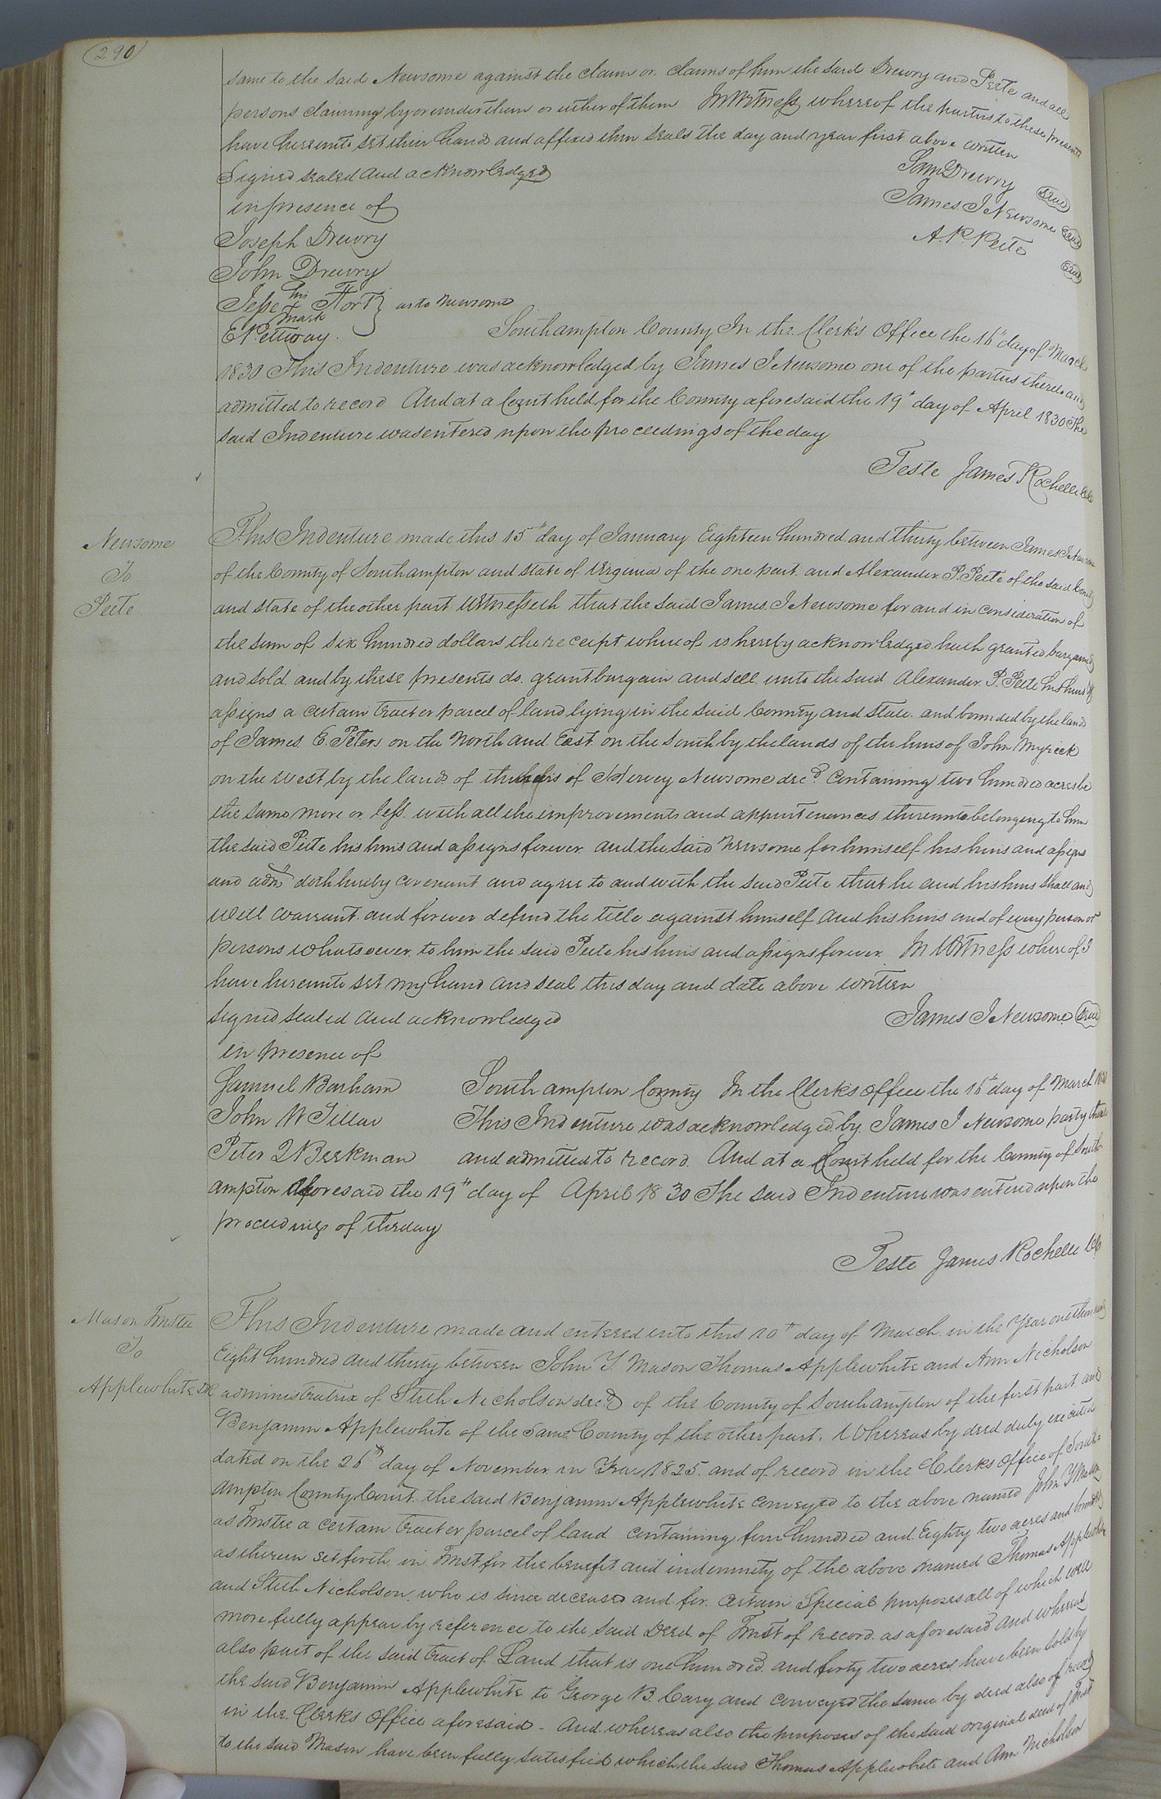 290
same to the said Newsome against the claim or claims of him the said Drewry and Peete and all
persons claiming by or under them or either of them In Witness whereof the parties to these presents
have hereunto set their hand and affixed their seals the day and year first above written
Signed sealed and acknowledged
in presence of
Sam Drewry Seal
James J Newsome Seal
A. P. Peete Seal
Joseph Drewry
John Drewry
Jesse his mark Fort as to Newsome
E Pettway.
Southampton County In the Clerk's Office the 16th day of March
1830 This Indenture was acknowledged by James J Newsome one of the parties thereto and
admitted to record And at a Court held for the County aforesaid the 19th day of April 1830 The
said Indenture was entered upon the proceedings of the day
Teste James Rochelle Clk
Newsome
To
Peete
This Indenture made this 15th day of January Eighteen hundred and thirty between James J Newsome
of the County of Southampton and state of Virginia of the one part and Alexander P. Peete of the said County
and state of the other part Witnesseth that the said James J Newsome for and in consideration of
the sum of six hundred dollars the receipt whereof is hereby acknowledged hath granted bargained
and sold and by these presents do grant bargain and sell unto the said Alexander P. Peete his heirs &
assigns a certain tract or parcel of land lying in the said County and State and bounded by the lands
of James E. Peters on the North and East on the South by the lands of the heirs of John Myrick
on the West by the lands of the heirs of Hervey Newsome decd. containing two hundred acres be
the same more or less with all the improvements and appurtenances thereunto belonging to him
the said Peete his heirs and assigns forever and the said Newsome for himself his heirs and assigns
and adrs doth hereby covenant and agree to and with the said Peete that he and his heirs shall and
will warrant and forever defend the title against himself and his heirs and of every person or
persons whatsoever to him the said Peete his heirs and assigns forever In Witness whereof I
have hereunto set my hand and seal this day and date above written
Signed sealed and acknowledged
in presence of
James J Newsome Seal
Samuel Barham
John W Tillar
Peter Beekman
Southampton County In the Clerks office the 16th day of March 1830
This Indenture was acknowledged by James J Newsome party thereto
and admitted to record. And at a Court held for the County of South
ampton aforesaid the 19th day of April 1830 The said Indenture was entered upon the
proceedings of the day
Teste James Rochelle Clk
Mason Trustee
To
Applewhite
This Indenture made and entered into this 10th day of March in the Year one thousand
Eight hundred and thirty between John Y. Mason Thomas Applewhite and Ann Nicholson
administratrix of Stith Nicholson decd of the County of Southampton of the first part and
Benjamin Applewhite of the same County of the other part. Whereas by deed duly executed
dated on the 26th day of November in Year 1825 and of record in the Clerks Office of South
ampton County Court the said Benjamin Applewhite conveyed to the above named John Y Mason
as Trustee a certain tract or parcel of land containing four hundred and Eighty two acres and bounded
as therein set forth in Trust for the benefit and indemnity of the above named Thomas Applewhite
and Stith Nicholson who is since deceased and for certain Special purposes all of which will
more fully appear by reference to the said Deed of Trust of record as aforesaid And whereas
also part of the said tract of Land that is one hundred and forty two acres have been sold by
the said Benjamin Applewhite to George B. Cary and conveyed the same by deed also of record
in the Clerks Office aforesaid - And whereas also the purposes of the said original deed of Trust
to the said Mason have been fully satisfied which the said Thomas Applewhite and Ann Nicholson